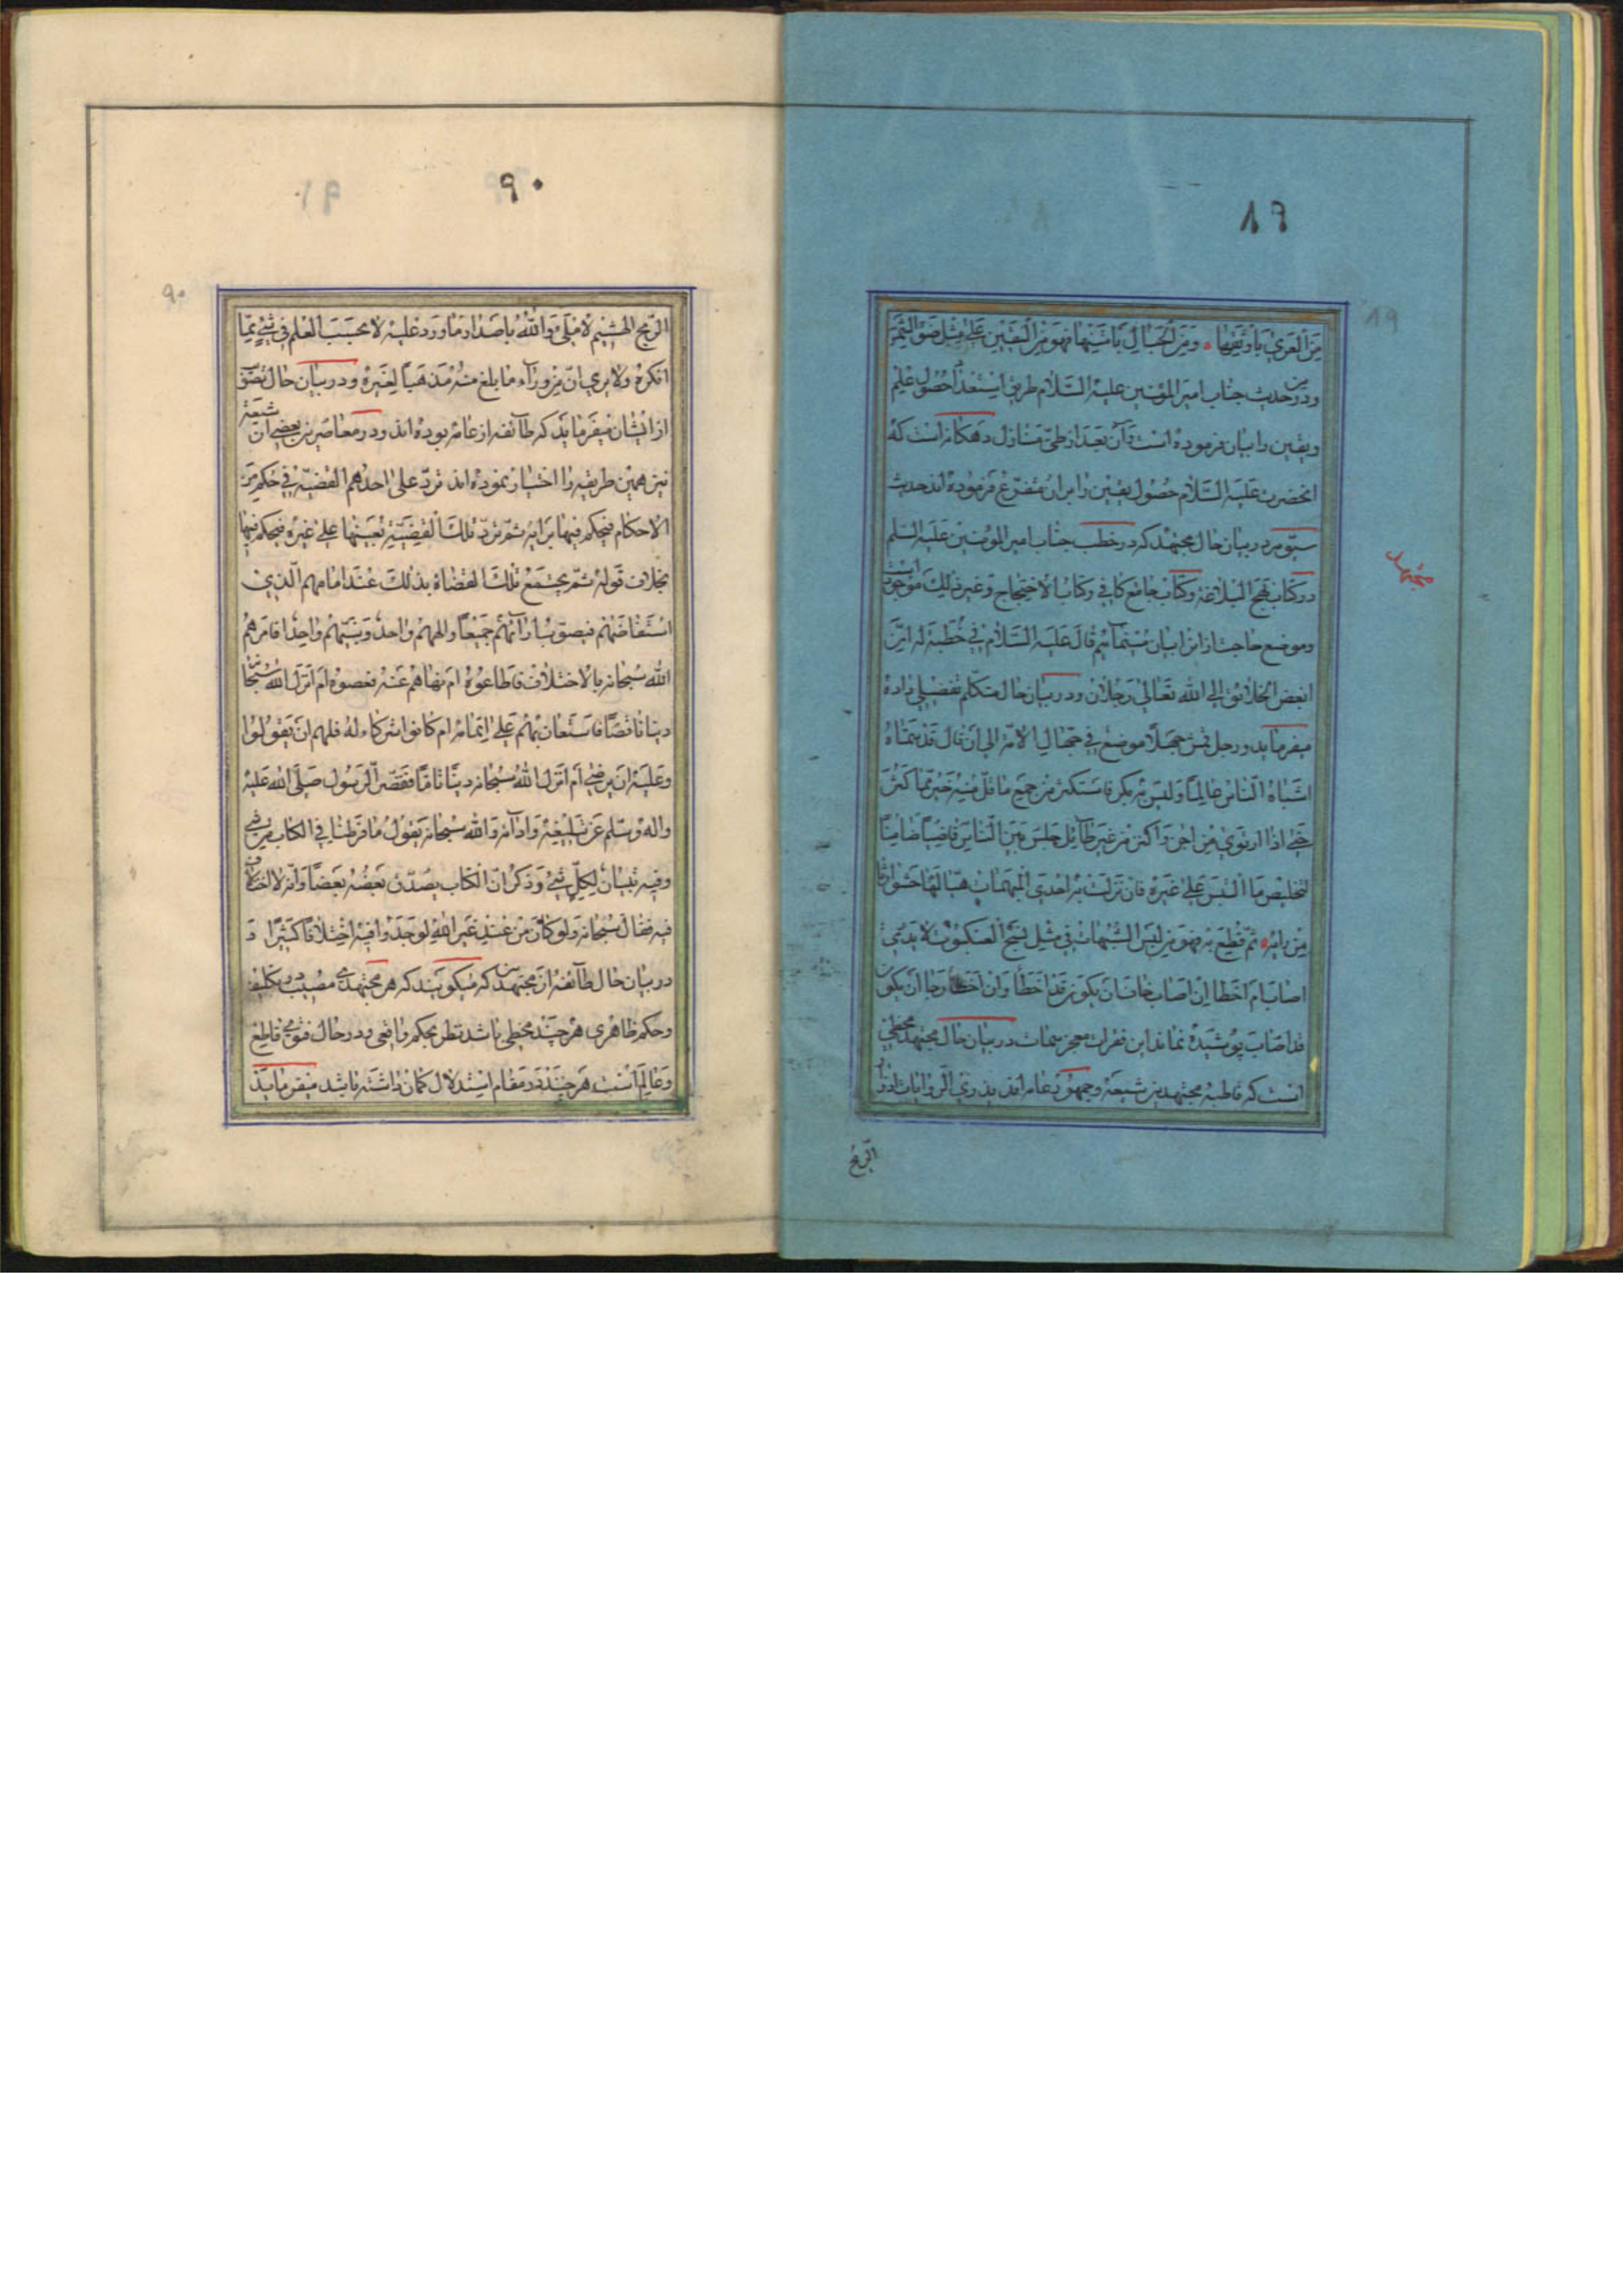 ۸۹
من العری باوثقها ومن الجبال بامتنها فهو من الیقین علی مثل ضوء الشمس
ودرین حدیث جناب امیر المؤمنین علیه السلام طریق استعداد حصول علم
ویقین را بیان فرموده است وآن بعد از طی منازل دهکانه است که
انحضرت علیه السلام حصول یقین را بران متفرع فرموده اند حدیث
سیوم در بیان حال مجتهد که در خطب جناب امیر المؤمنین علیه السلم
درکتاب نهج البلاغه وکتاب جامع کافی وکتاب الاحتجاج وغیر ذلک موجود است
وموضع حاجت از انرا بیان مینمائیم قال علیه السلام فی خطبة له ان من
ابغض الخلائق الی الله تعالی رجلان ودر بیان حال متکلم تفضیلی داده
میفرماید ورجل قمش جهلا موضع فی جهال الامة الی ان قال قد سماه
اشباه الناس عالما ولیس به بکر فاستکثر من جمع ما قل منه خیر مما کثر
حتی اذا ارتوی من اجن واکتنز من غیر طائل جلس بین الناس قاضیا ضامنا
لتخلیص ما التبس علی غیره فان نزلت به احدی المبهمات هیا لها حشوا رثا
من رایه ثم قطع به فهو من لبس الشبهات فی مثل نسج العنکبوت لا یدری
اصاب ام اخطا ان اصاب خاف ان یکون قد اخطا وان اخطا رجا ان یکون
قد اصاب پوشیده نماند این فقرات معجز سمات در بیان حال مجتهد مخطی
است که قاطبه مجتهدین شیعه وجمهور عامه اند یذری الروایات اذراء
الریح
مجتهد
۸۹
۹۰
۹۰
الریح الهشیم لا ملیء والله باصدار ما ورد علیه لا یحسب العلم فی شیء مما
انکره ولا یری ان من وراء ما بلغ منه مذهبا لغیره ودر بیان حال تصویب
ازایشان میفرماید که طائفه از عامه بوده اند ودر معاصرین بعضی از شیعه
نیز همین طریقه را اختیار نموده اند ترد علی احدهم القضیة فی حکم من
الاحکام فیحکم فیها برایه ثم ترد تلک القضیة بعینها علی غیره فیحکم فیها
بخلاف قوله ثم یجتمع تلک القضاة بذلک عند امامهم الذی
استقضاهم فیصوب ارائهم جمیعا والههم واحد ونبیهم واحد افامرهم
الله سبحانه بالاختلاف فاطاعوه ام نهاهم عنه فعصوه ام انزل الله سبحانه
دینا ناقصا فاستعان بهم علی اتمامه ام کانوا شرکاء له فلهم ان یقولوا
وعلیه ان یرضی ام انزل الله سبحانه دینا تاما فقصر الرسول صلی الله علیه
واله وسلم عن تبلیغه وادائه والله سبحانه یقول ما فرطنا فی الکتاب من شیء
وفیه تبیان لکل شیء وذکر ان الکتاب یصدق بعضه بعضا وانه لا اختلاف
فیه فقال سبحانه ولو کان من عند غیر الله لوجدوا فیه اختلافا کثیرا و
در بیان حال طائفه از مجتهدین که میکویند که هر مجتهدی مصیب در تکلیف
وحکم ظاهری هرچند مخطی باشد نظر بحکم واقعی ودر حال فتوی قاطع
وعالم است هرچند در مقام استدلال کمان داشته باشد میفرماید